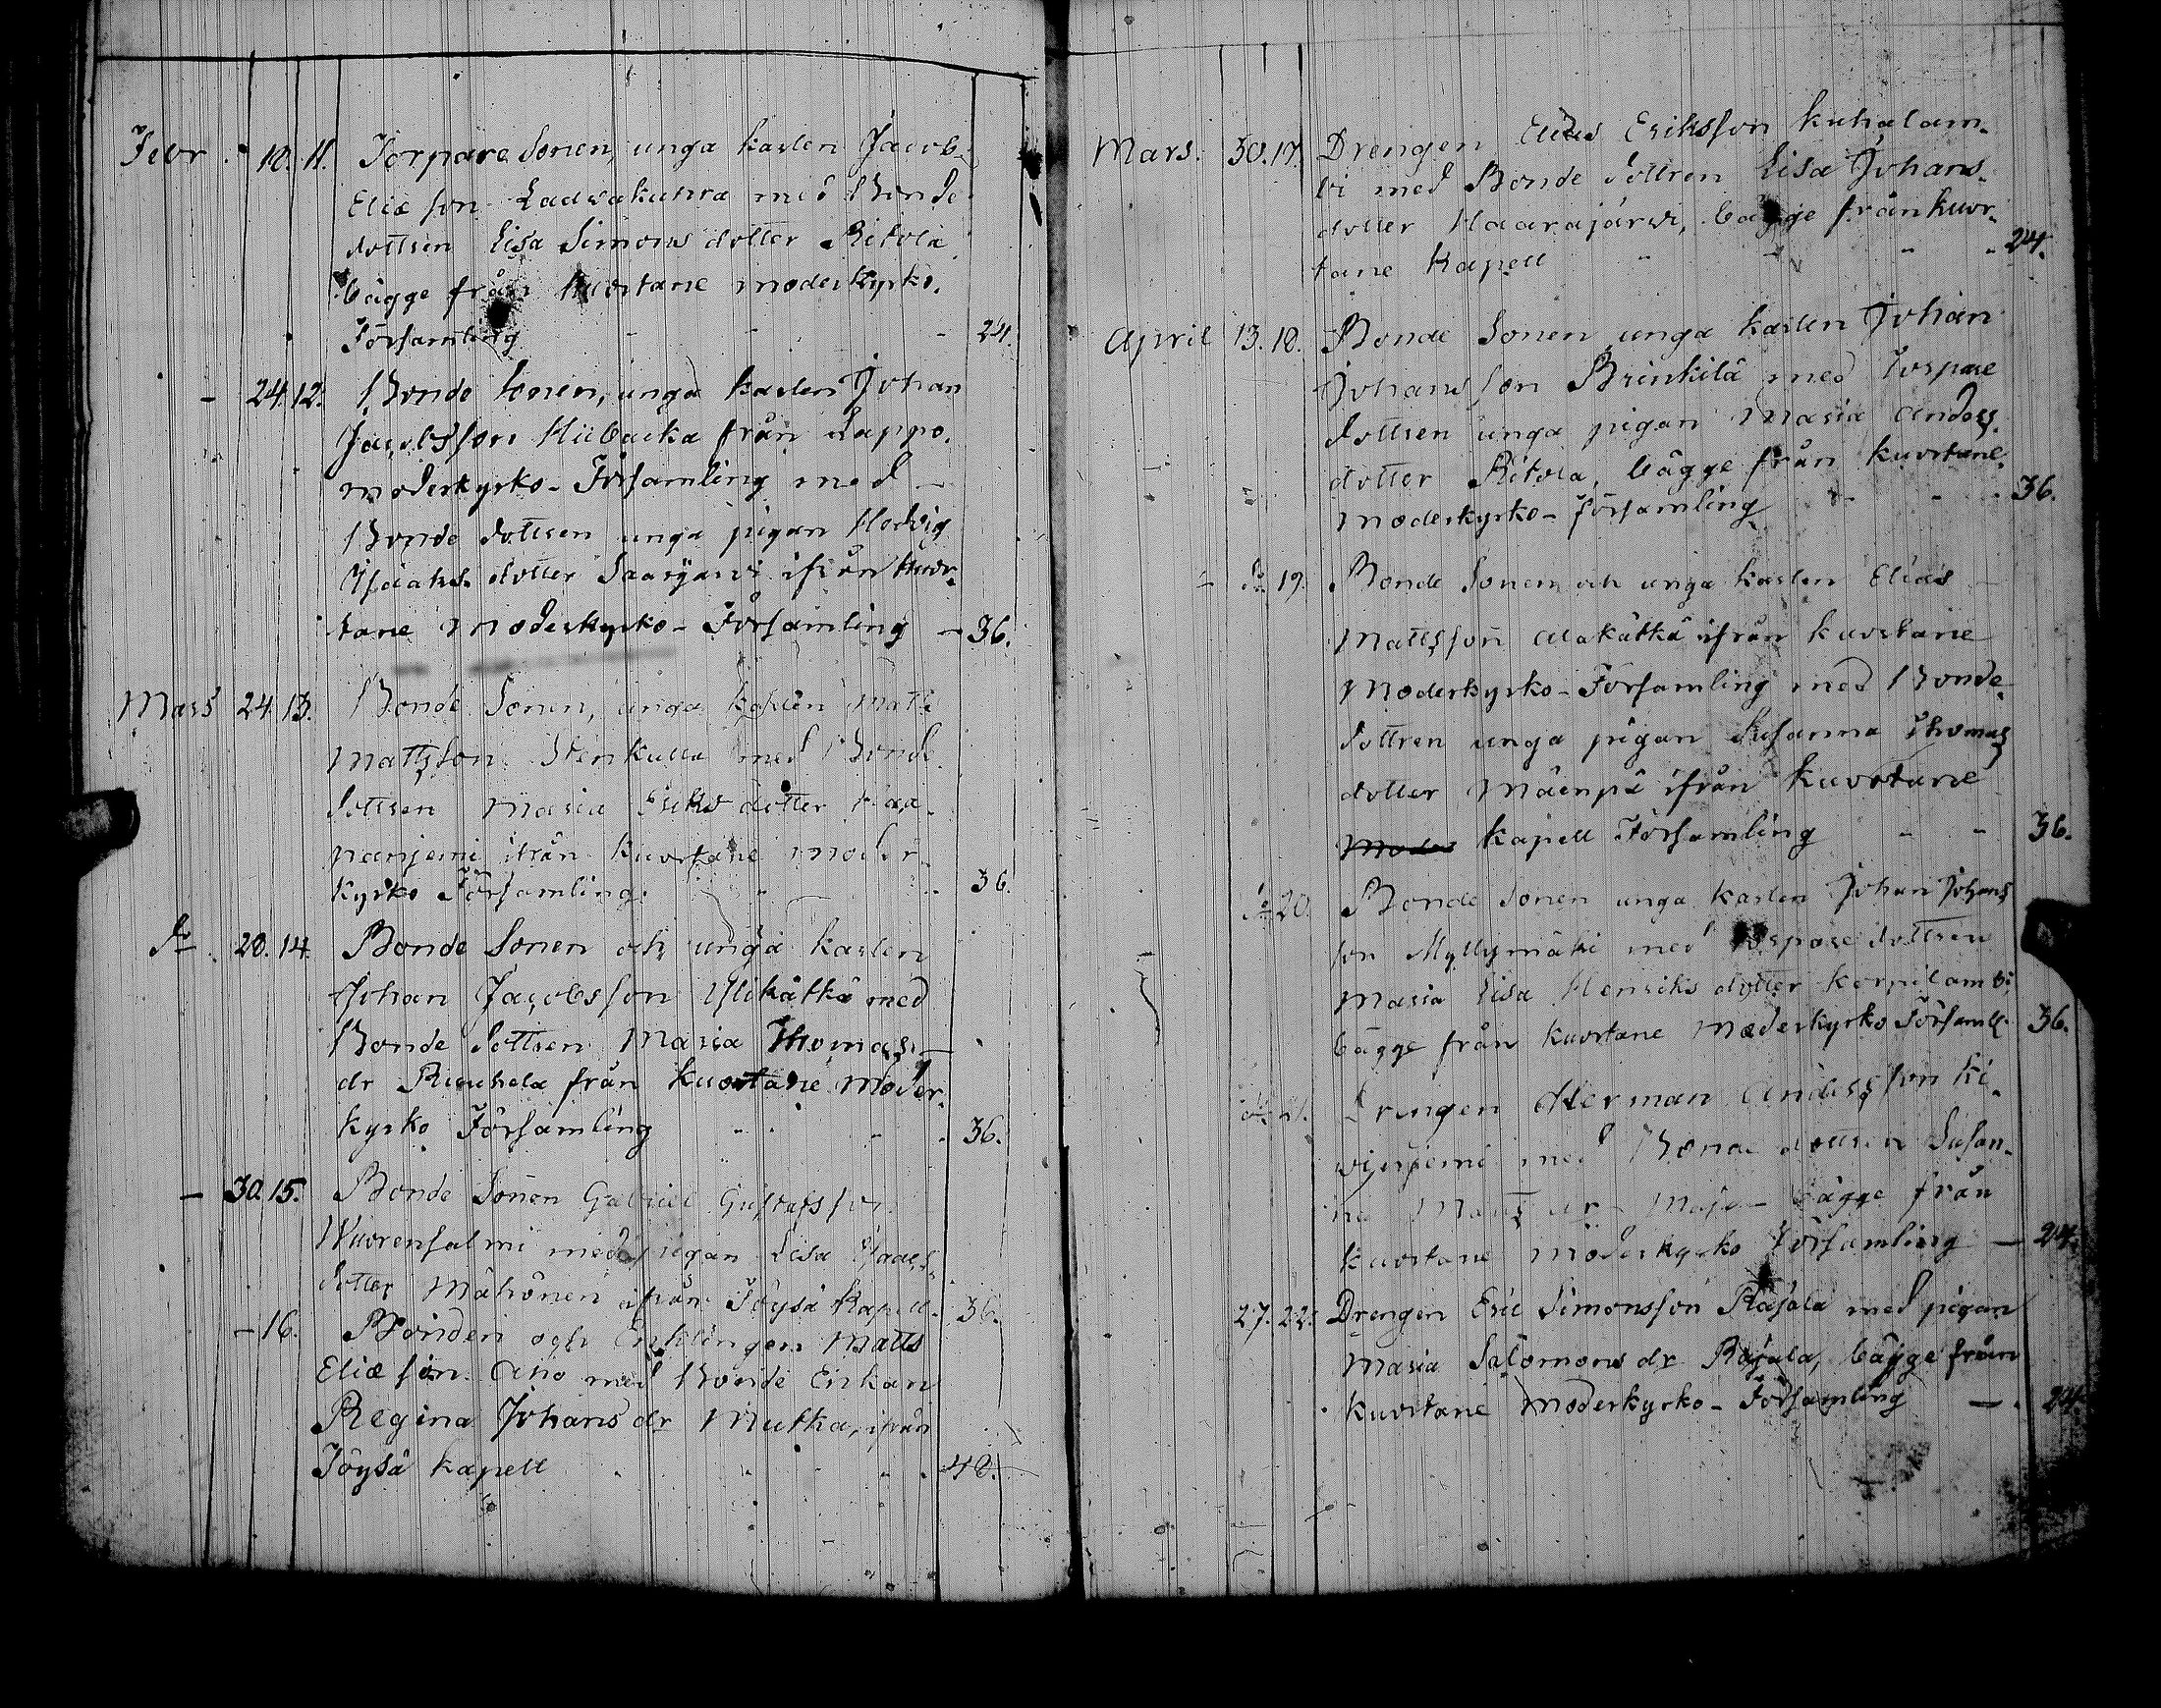 Febr. 10. 11. Torpare Sonen, unga karlen Jacob
Eliæ son Ladvakuhra med Bonde
dottren Lisa Simons dotter Ritola
bägge från Kuortane moderkyrko-
Församling - - - 24.
- 24. 12. Bonde Sonen, unga karlen Johan
Jacobsson Hiibacka från Lappo
moderkyrko-Församling med
Bonde dottren unga pigan Hedvig
Isaaks dotter Saarijarvi ifrån Kuor-
tane Moderkyrko-Församling - 36.
Mars 24. 13. Bonde Sonen, unga karlen Matts
Mattsson Stenkulla med Bonde
dottren Maria Eriks dotter
ifrån Kuortane moder-
kyrko Församling. - - 36.
do. 28. 14. Bonde Sonen och unga karlen
Johan Jacobsson Ylikätkä med
Bonde dottren Maria Thomas
dr Ruuhela från Kuortane Moder-
kyrko Församling - - - 36.
- 30. 15. Bonde Sonen Gabriel Gustafsson
Wuorensalmi med pigan Lisa Isaacs
dotter Mähönen ifrån Töysä Kapell. 36.
- 16. Bonden och Enklingen Matts
Eliæ son Aho med Bonde Enkan
Regina Johans dr Mutka, ifrån
Töysä kapell - - - 48.
Mars. 30. 17. Drengen Elias Eriksson Kuhalam-
bi med Bonde dottren Lisa Johans-
dotter Haarajärvi, bägge från Kuor-
tane Kapell - - - 24.
April 13. 18. Bonde Sonen unga karlen Johan
Johansson Brinkilä med Torpare
dottren unga pigan Maria Anders
dotter Ritola, bägge från Kuortane
Moderkyrko-Församling - - - 36.
- do. 19. Bonde Sonen och unga karlen Elias
Mattsson Alakätkä ifrån Kuortane
Moderkyrko-Församling med Bonde
dottren unga pigan Susanna Thomas
dotter Mäenpä ifrån Kuortane
Moder Kapell Församling - - 36.
do 20. Bonde Sonen unga karlen Johan Johans
son Myllymäki med Torpare dottren
Maria Lisa Henriks dotter Korpilambi
bägge från Kuortane Moderkyrko Församl. 36.
do 21. Drengen Herman Andersson Ki-
vijersemi med Bonde dottren Susan-
na Matts dr bägge från
Kuortane Moderkyrko Församling - 24.
27. 22. Drengen Eric Simonsson Rajala med pigan
Maria Salomons dr Rajala, bägge från
Kuortane Moderkyrko-Församling - 24.